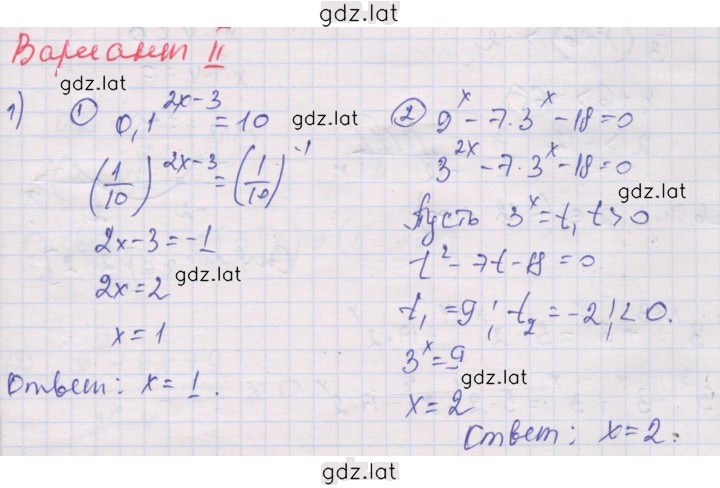 gdz.lat
Вариант II
gdz.lat
1) ① 0,1^(2x-3) = 10
gdz.lat
(1/10)^(2x-3) = (1/10)^(-1)
2x-3 = -1
gdz.lat
2x = 2
x = 1
Ответ: x = 1.
② 9^x - 7·3^x - 18 = 0
3^(2x) - 7·3^x - 18 = 0
gdz.lat
Пусть 3^x = t, t > 0
t² - 7t - 18 = 0
t₁ = 9; t₂ = -2; < 0.
3^x = 9
gdz.lat
x = 2
Ответ: x = 2.
gdz.lat